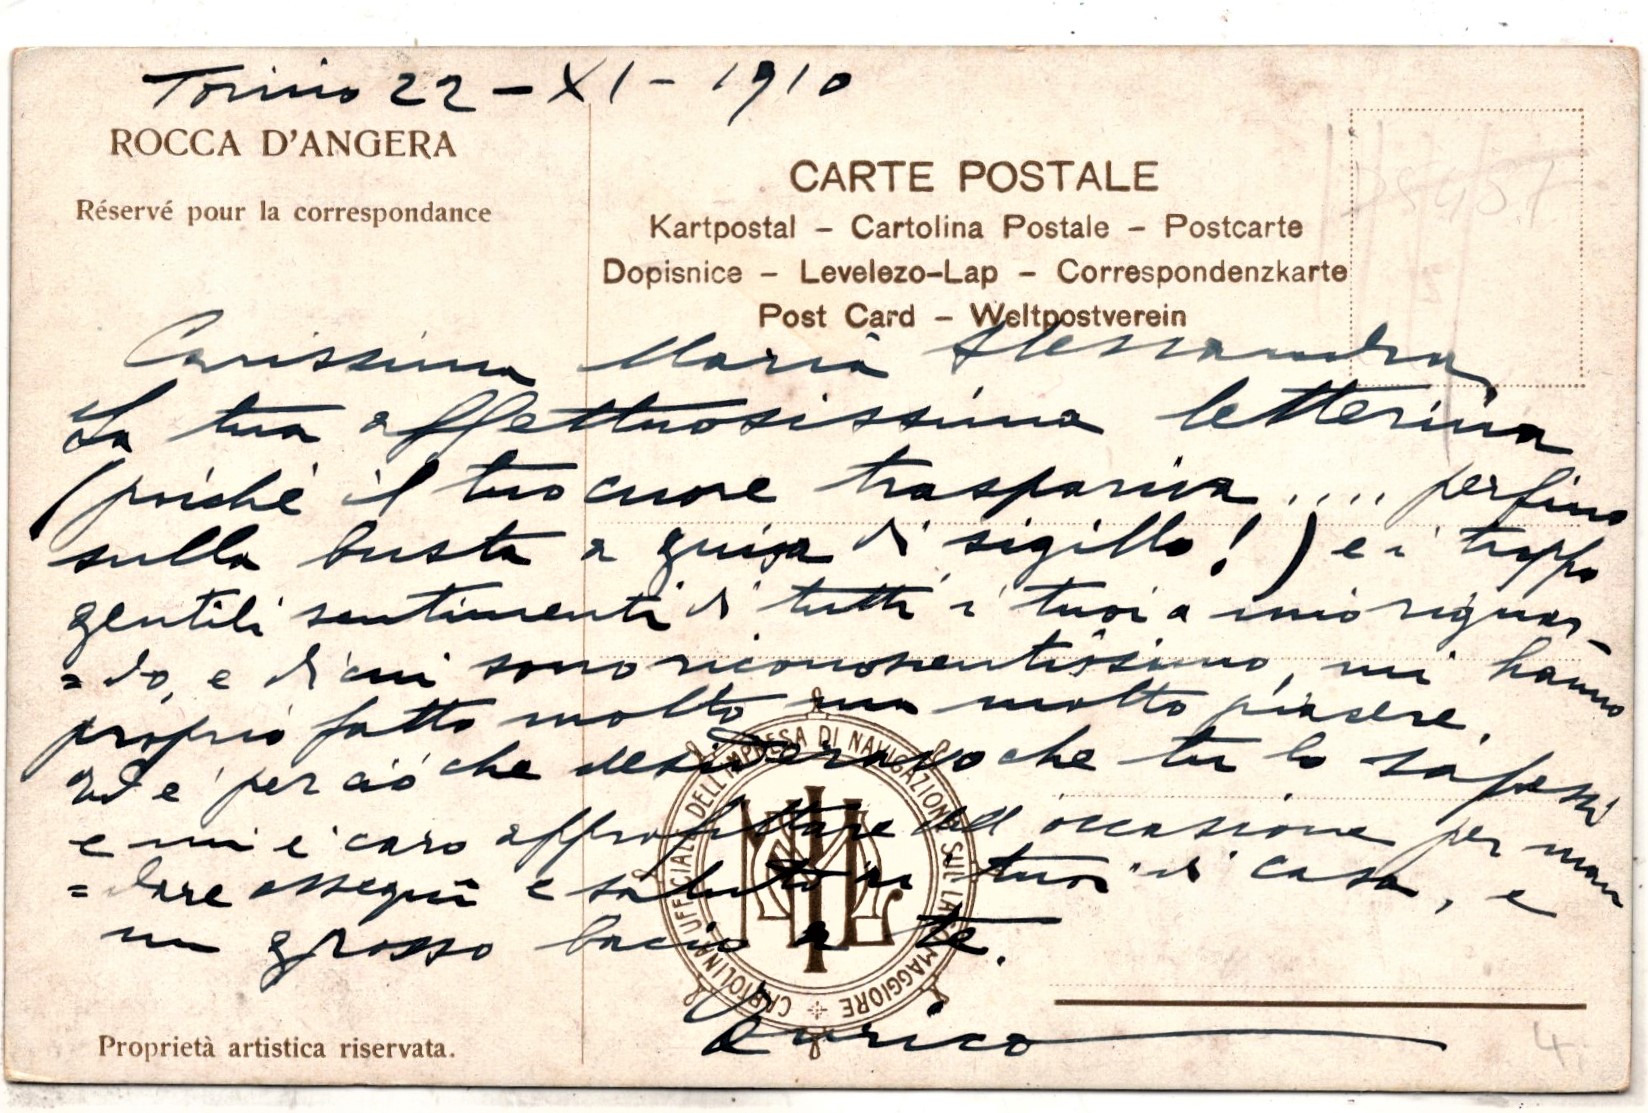 Torino 22-XI-1910
ROCCA D'ANGERA
Réservé pour la correspondance
CARTE POSTALE
Kartpostal – Cartolina Postale – Postcarte
Dopisnice – Levelezo-Lap – Correspondenzkarte
Post Card – Weltpostverein
Carissima Maria Alessandra,
La tua affettuosissima letterina
(poichè il tuo cuore traspariva .... perfino
sulla busta a guisa di sigillo!) e i troppo
gentili sentimenti di tutti i tuoi a mio riguar-
=do, e di cui sono riconoscentissimo, mi hanno
proprio fatto molto ma molto piacere.
Ed è perciò che desideravo che tu lo sapessi
e mi è caro approfittare dell'occasione per man
=dare ossequi e saluti ai tuoi di casa, e
un grosso bacio a te.
Enrico
CARTOLINA UFFICIALE DELL'IMPRESA DI NAVIGAZIONE SUL LAGO MAGGIORE
Proprietà artistica riservata.
4